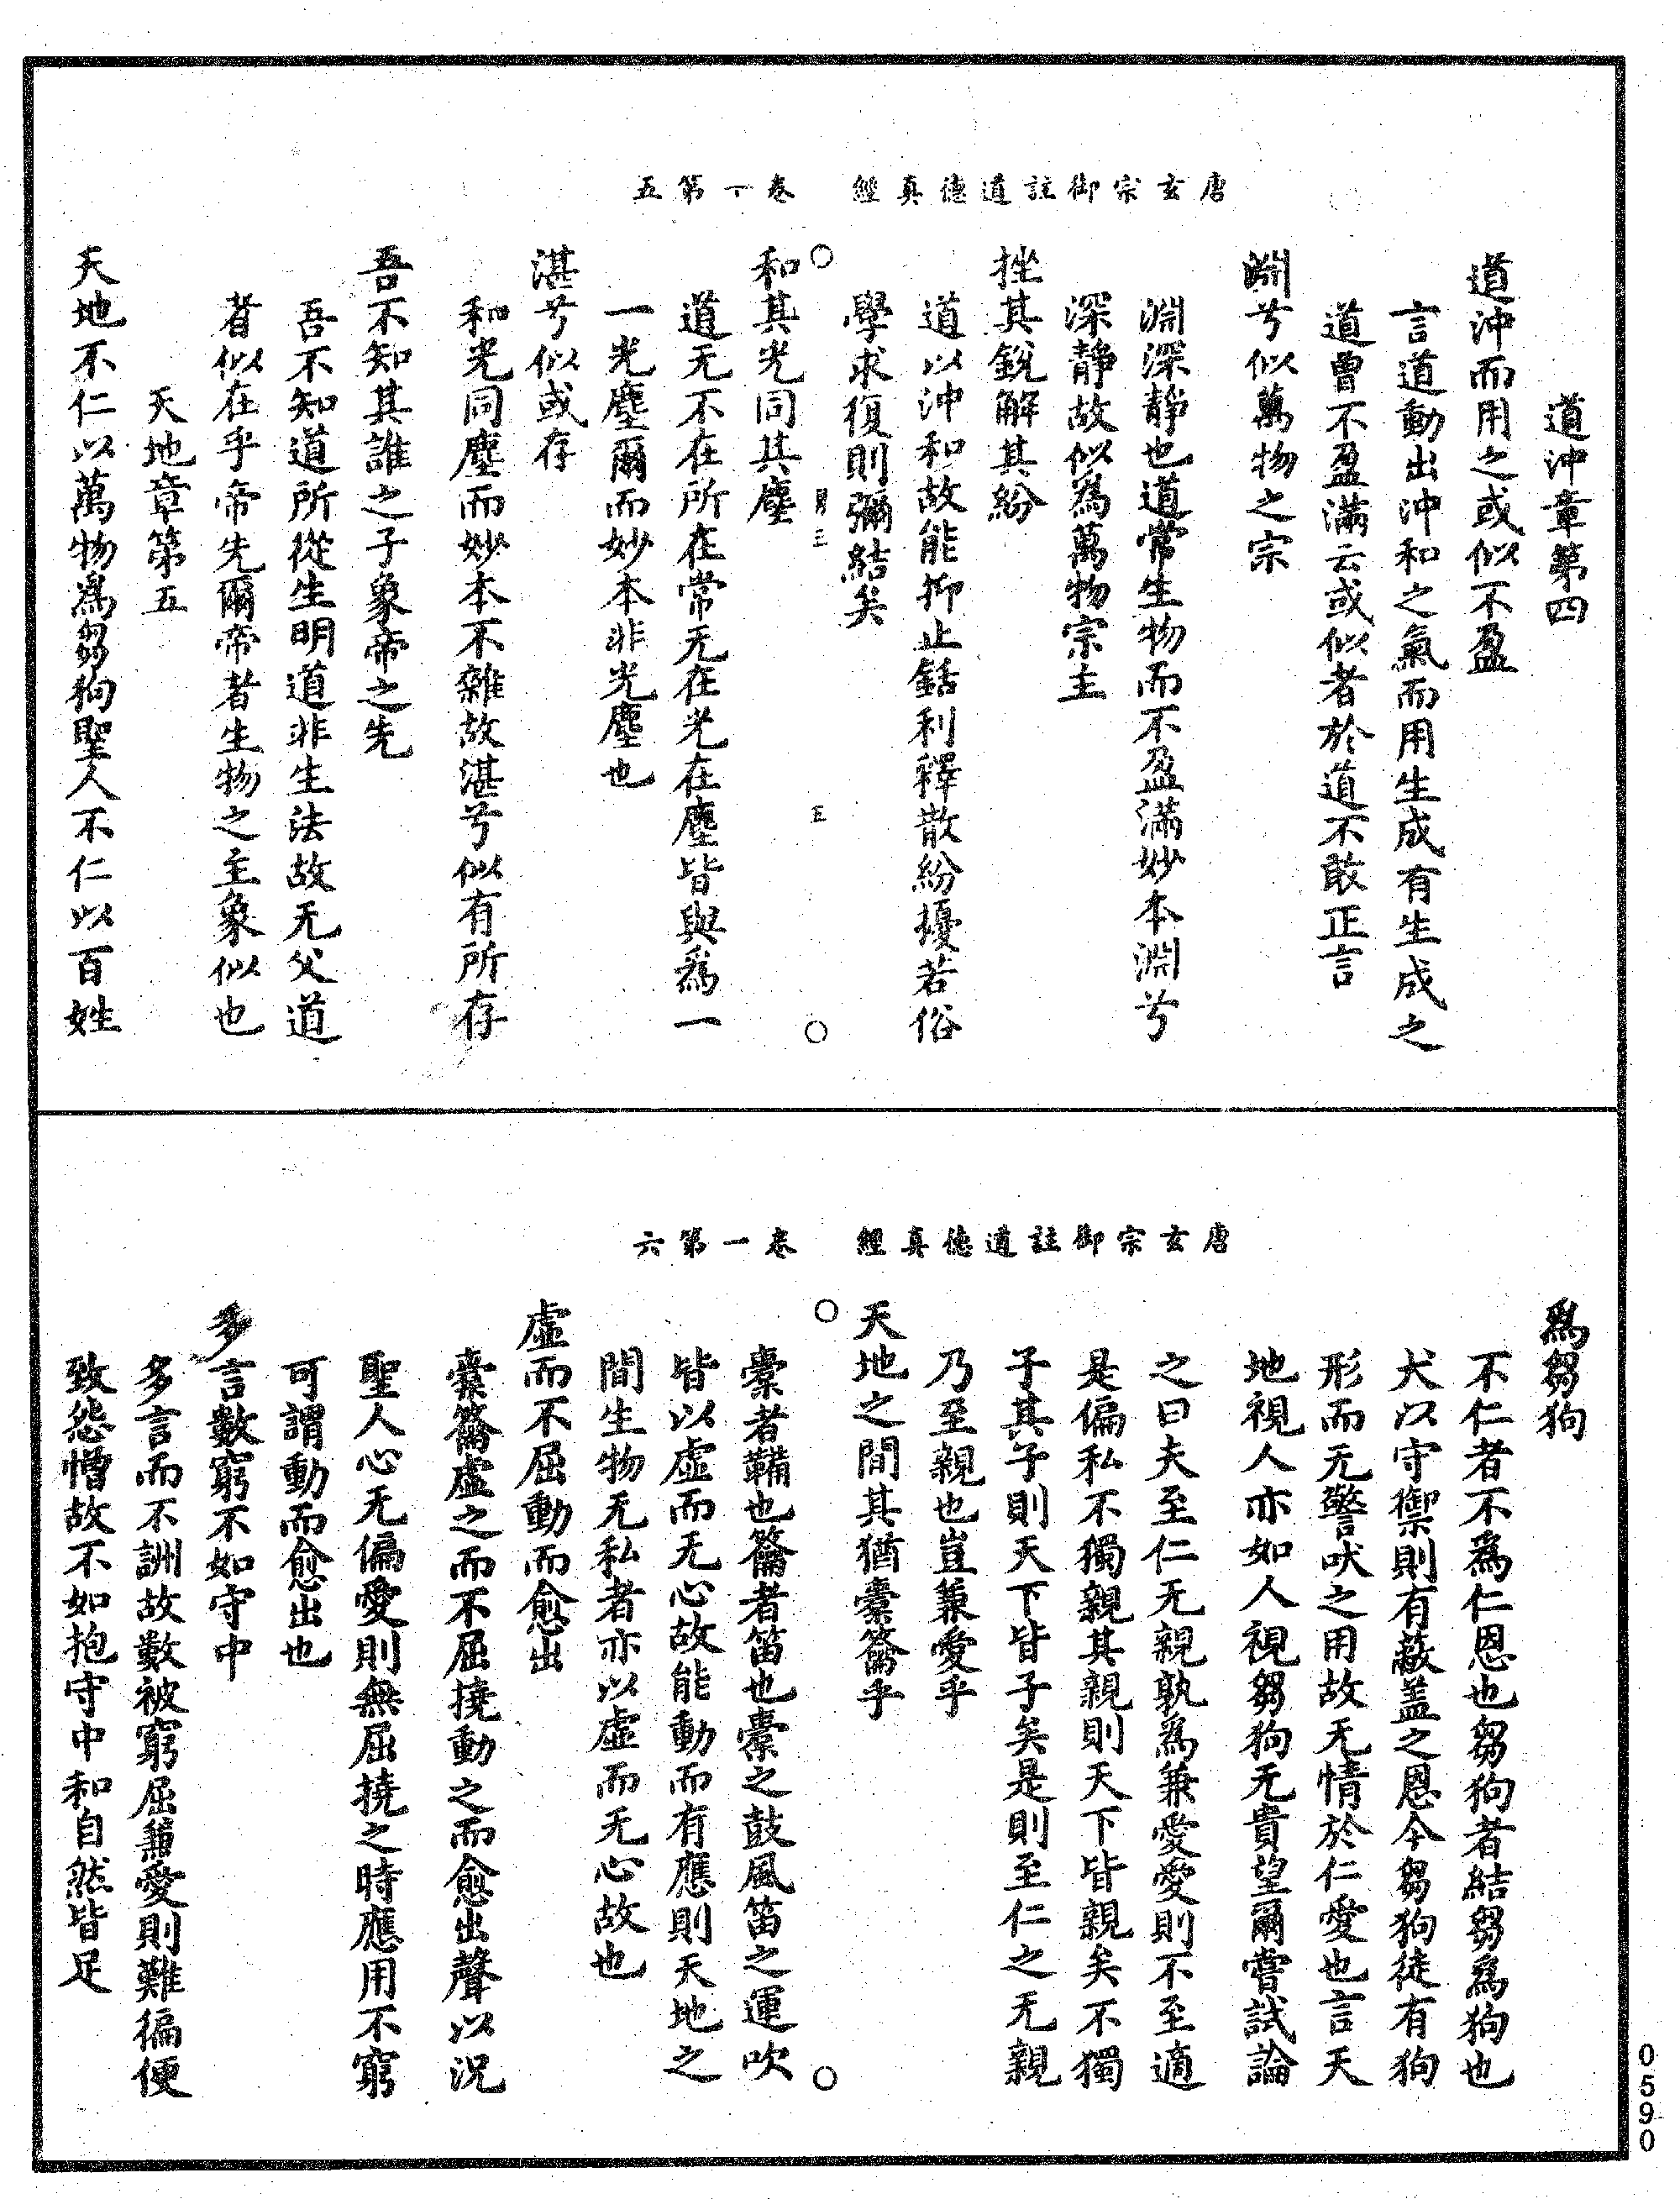 唐玄宗御註道德真經　卷一第五
道沖章第四
道沖而用之或似不盈
言道動出沖和之氣而用生成有生成之
道曾不盈滿云或似者於道不敢正言
淵兮似萬物之宗
淵深靜也道常生物而不盈滿妙本淵兮
深靜故似為萬物宗主
挫其銳解其紛
道以沖和故能抑止銛利釋散紛擾若俗
學求復則彌結矣
○　三　○
和其光同其塵
道无不在所在常无在光在塵皆與為一
一光塵爾而妙本非光塵也
湛兮似或存
和光同塵而妙本不雜故湛兮似有所存
吾不知其誰之子象帝之先
吾不知道所從生明道非生法故无父道
者似在乎帝先爾帝者生物之主象似也
天地章第五
天地不仁以萬物為芻狗聖人不仁以百姓
唐玄宗御註道德真經　卷一第六
為芻狗
不仁者不為仁恩也芻狗者結芻為狗也
犬以守禦則有蔽蓋之恩今芻狗徒有狗
形而无警吠之用故无情於仁愛也言天
地視人亦如人視芻狗无責望爾嘗試論
之曰夫至仁无親孰為兼愛愛則不至適
是偏私不獨親其親則天下皆親矣不獨
子其子則天下皆子矣是則至仁之无親
乃至親也豈兼愛乎
天地之間其猶橐籥乎
○　○
橐者韛也籥者笛也橐之鼓風笛之運吹
皆以虛而无心故能動而有應則天地之
間生物无私者亦以虛而无心故也
虛而不屈動而愈出
橐籥虛之而不屈撓動之而愈出聲以況
聖人心无偏愛則無屈撓之時應用不窮
可謂動而愈出也
多言數窮不如守中
多言而不詶故數被窮屈兼愛則難徧便
致怨憎故不如抱守中和自然皆足
0590